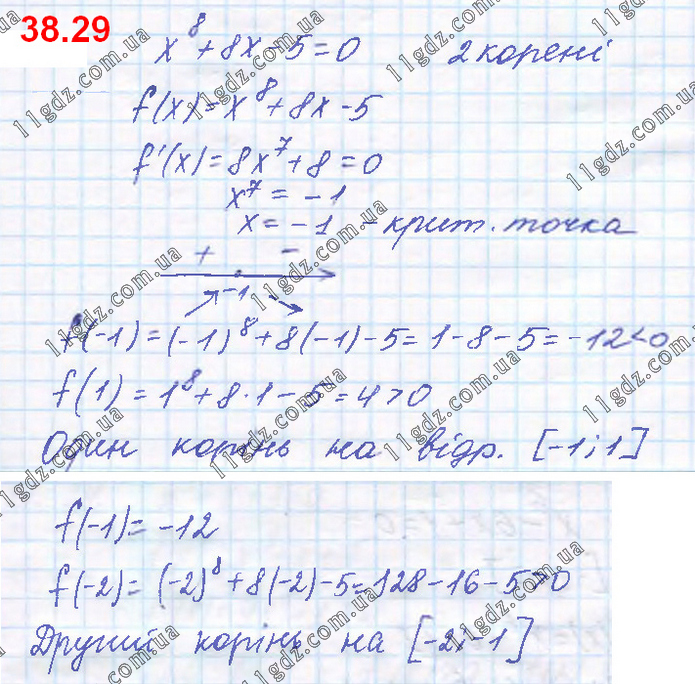 38.29
x⁸ + 8x - 5 = 0 2 корені
f(x) = x⁸ + 8x - 5
f'(x) = 8x⁷ + 8 = 0
x⁷ = -1
x = -1 - крит. точка
+ -
-1
f(-1) = (-1)⁸ + 8(-1) - 5 = 1 - 8 - 5 = -12 < 0
f(1) = 1⁸ + 8 · 1 - 5 = 4 > 0
Один корінь на відр. [-1; 1]
f(-1) = -12
f(-2) = (-2)⁸ + 8(-2) - 5 = 128 - 16 - 5 > 0
Другий корінь на [-2; -1]
11gdz.com.ua